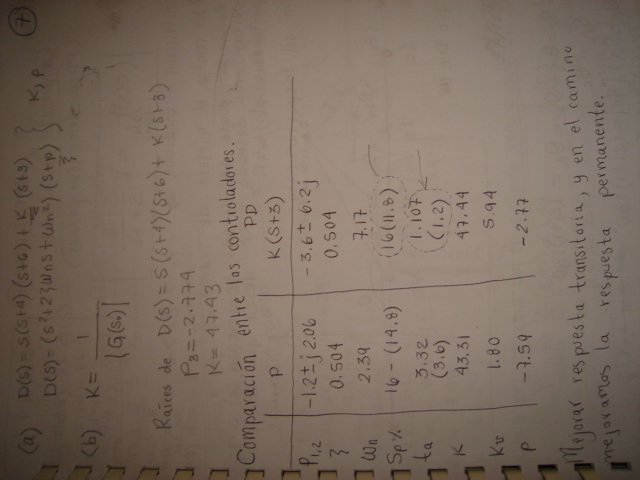 7
(a) D(s) = s(s+4)(s+6) + K(s+3) } K, p
D(s) = (s²+2ζωns+ωn²)(s+p)
(b) K = 1 / |G(s₀)|
Raíces de D(s) = s(s+4)(s+6) + K(s+3)
P3 = -2.774
K = 47.43
Comparación entre los controladores.
P PD
K(s+3)
P1,2 -1.2 ± j2.06 -3.6 ± 6.2j
ζ 0.504 0.504
ωn 2.39 7.17
Sp% 16 - (14.8) (16(11.8))
ta 3.32 1.107
(3.6) (1.2)
K 43.31 47.44
Kv 1.80 5.94
P -7.59 -2.77
Mejorar respuesta transitoria, y en el camino
mejoramos la respuesta permanente.